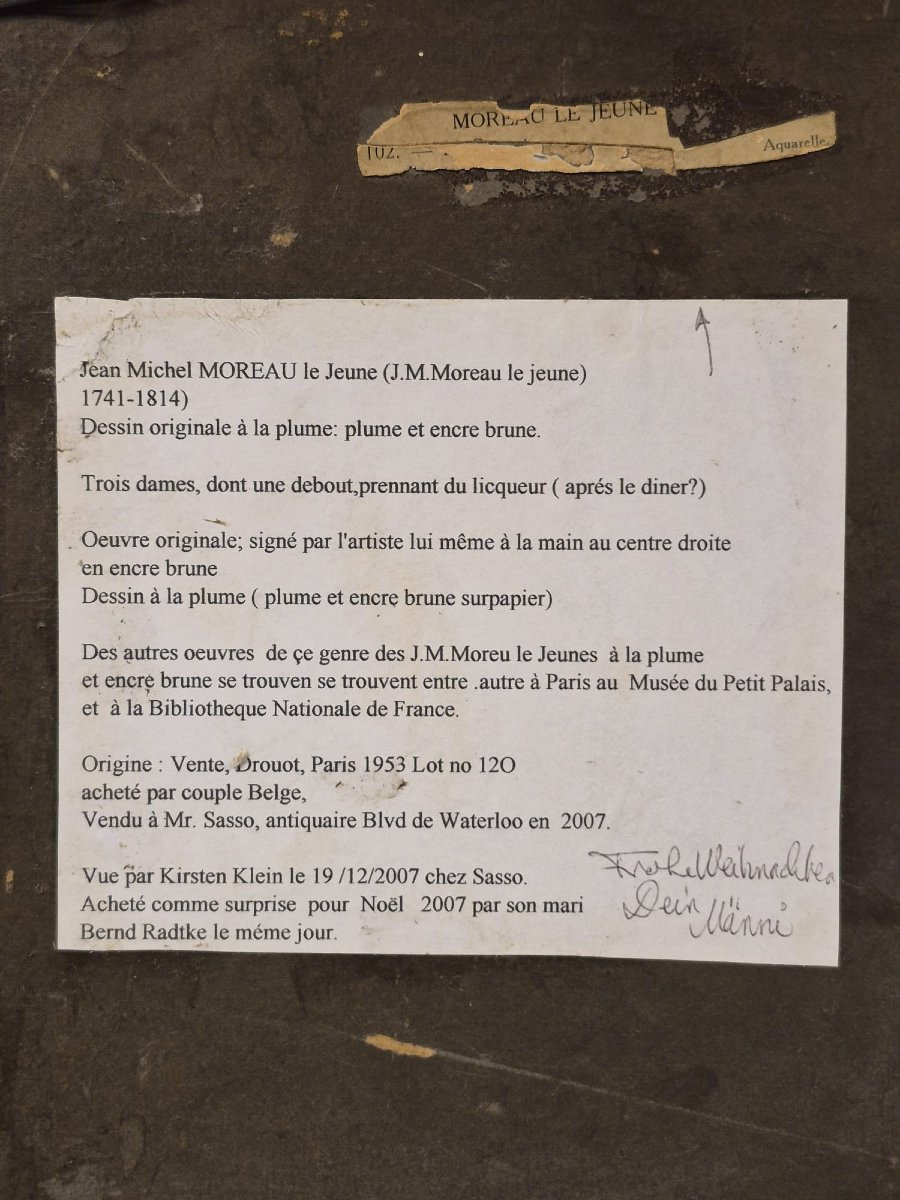 MOREAU LE JEUNE
102. —
Aquarelle.
Jean Michel MOREAU le Jeune (J.M.Moreau le jeune)
1741-1814)
Dessin originale à la plume: plume et encre brune.
Trois dames, dont une debout,prennant du licqueur ( aprés le diner?)
Oeuvre originale; signé par l'artiste lui même à la main au centre droite
en encre brune
Dessin à la plume ( plume et encre brune surpapier)
Des autres oeuvres de çe genre des J.M.Moreu le Jeunes à la plume
et encre brune se trouven se trouvent entre .autre à Paris au Musée du Petit Palais,
et à la Bibliotheque Nationale de France.
Origine : Vente, Drouot, Paris 1953 Lot no 12O
acheté par couple Belge,
Vendu à Mr. Sasso, antiquaire Blvd de Waterloo en 2007.
Vue par Kirsten Klein le 19 /12/2007 chez Sasso.
Acheté comme surprise pour Noël 2007 par son mari
Bernd Radtke le méme jour.
Frohe Weihnachten
Dein
Männi